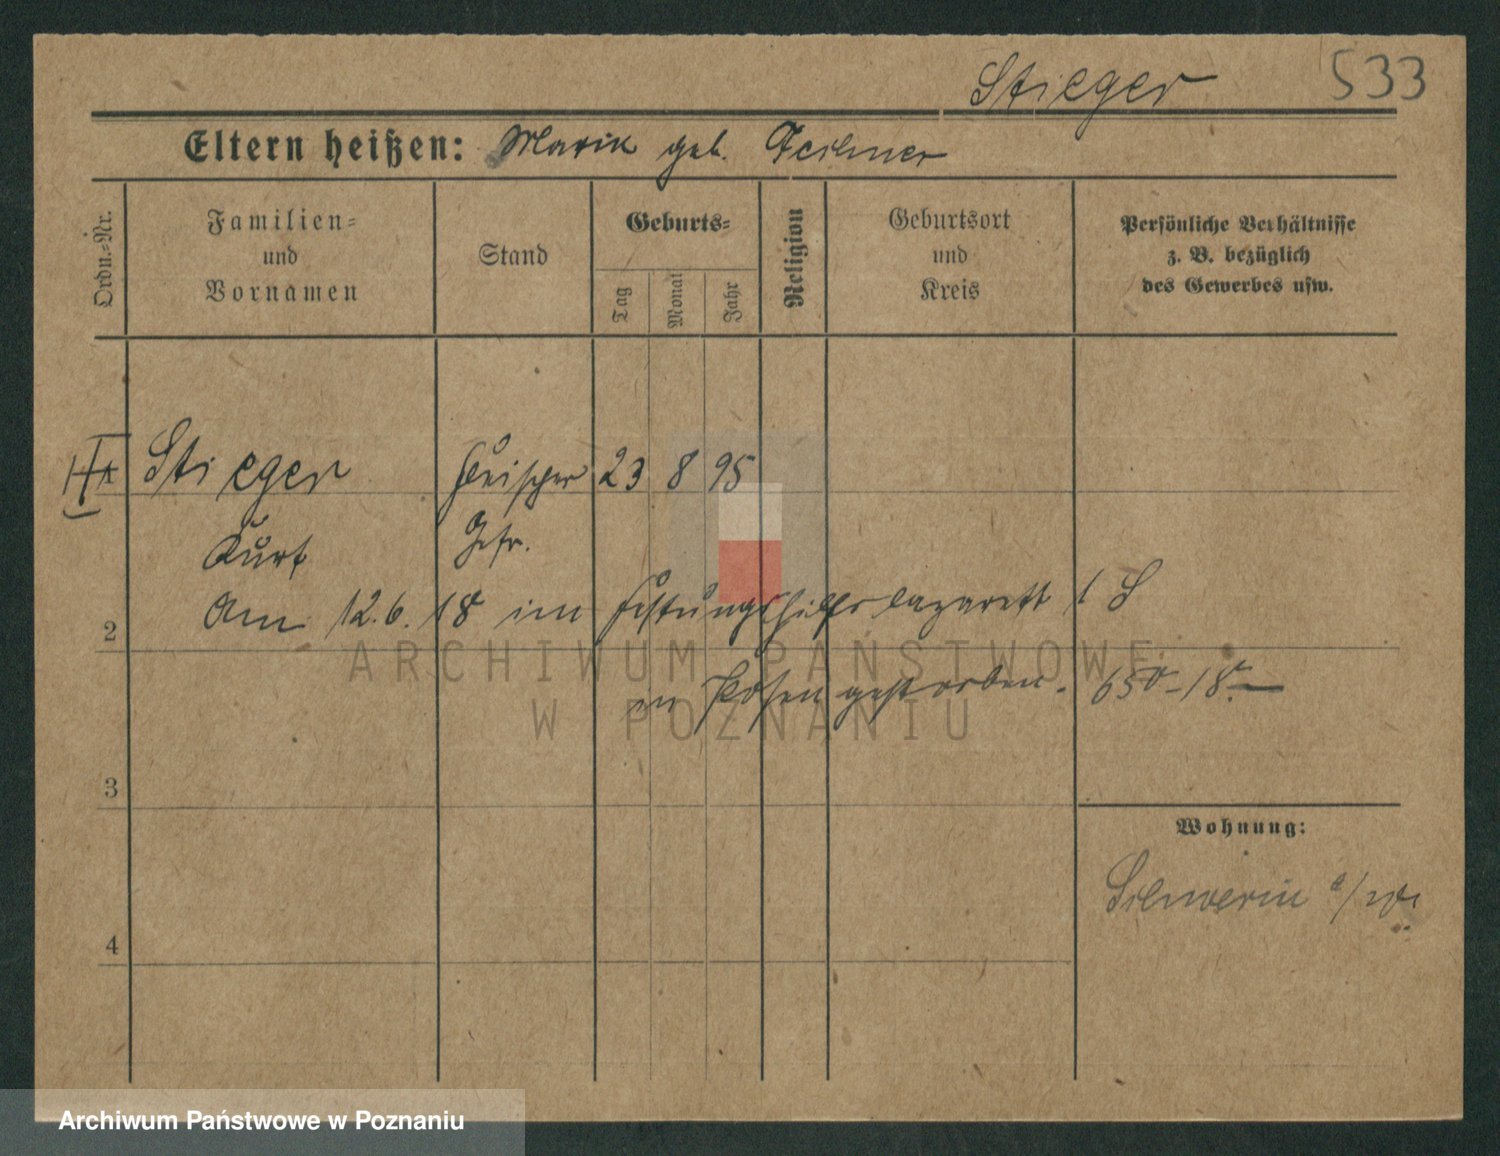 Stieger 533
Eltern heißen: Marie geb.
Ordn.-Nr.
Familien-
und
Vornamen
Stand
Geburts-
Tag
Monat
Jahr
Religion
Geburtsort
und
Kreis
Persönliche Verhältnisse
z. B. bezüglich
des Gewerbes usw.
Stieger Fleischer 23 8 95
Kurt Gefr.
Am 12.6.18 im Festungshilfslazarett I S
2
in Posen gestorben. 650-18.
ARCHIWUM PAŃSTWOWE
W POZNANIU
3
Wohnung:
Schwerin a/W.
4
Archiwum Państwowe w Poznaniu